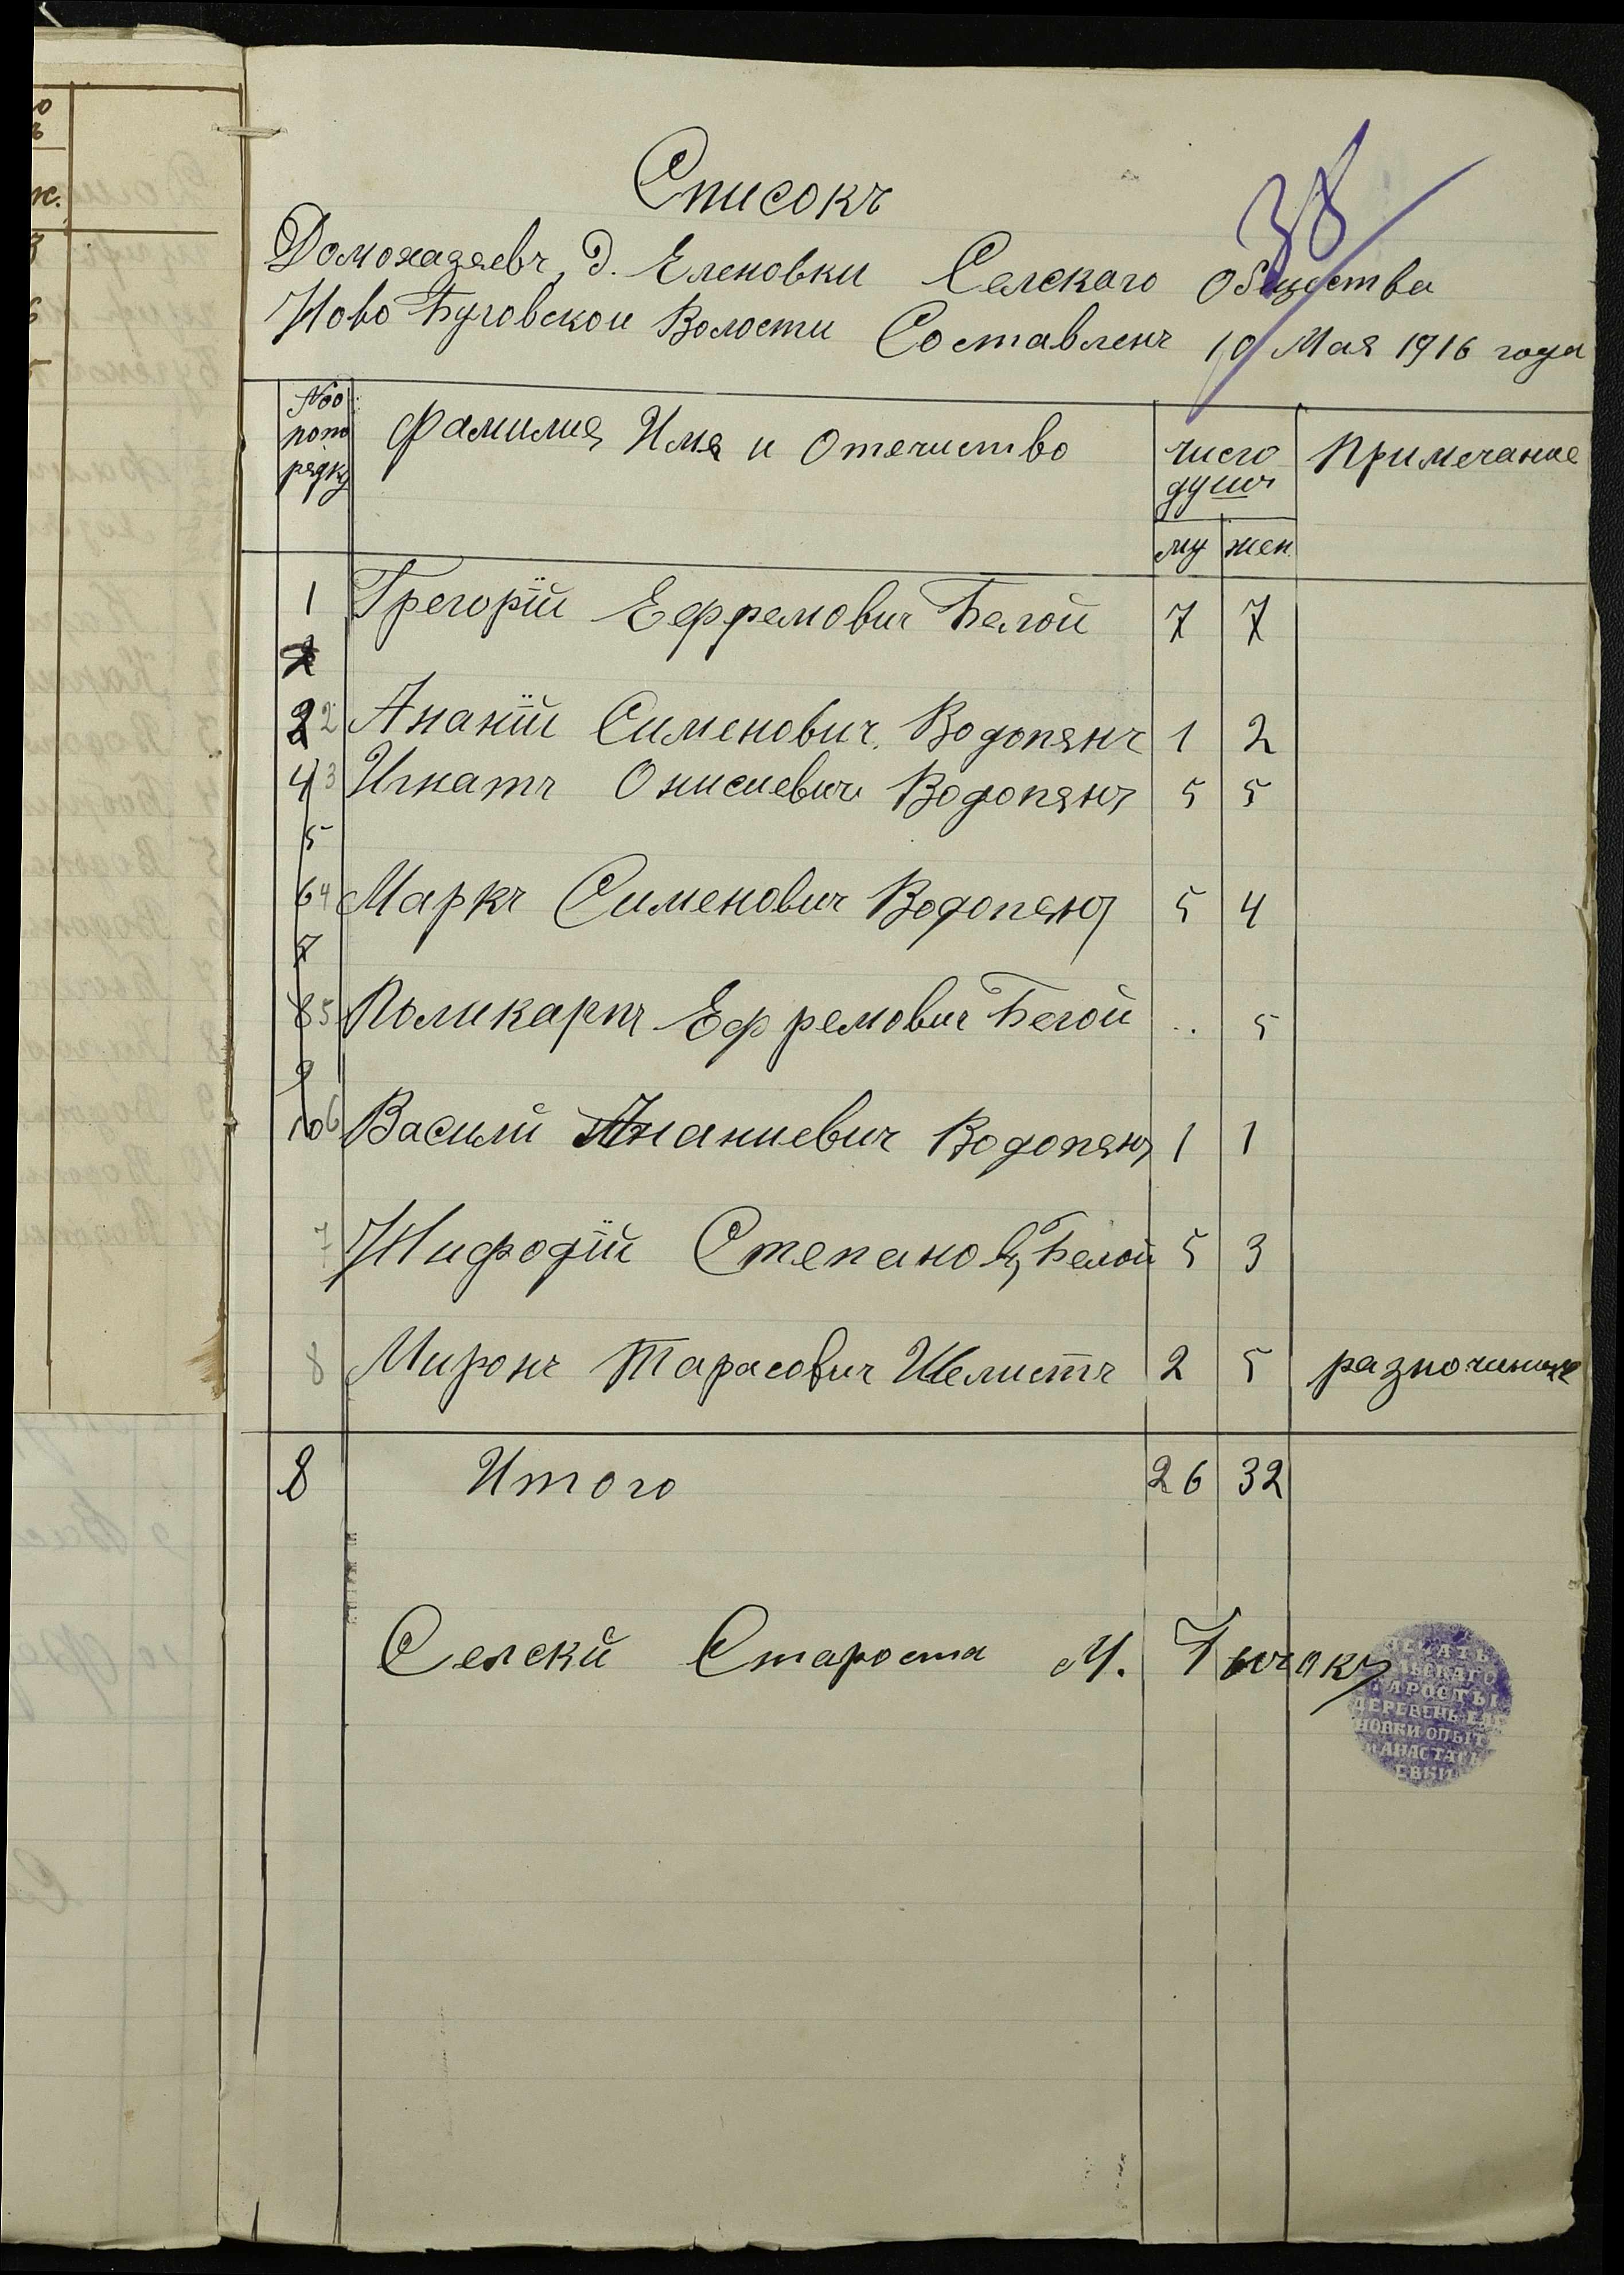 38
Списокъ
Домохазяевъ д. Еленовки Селскаго Общества
Ново Буговскои Волости Составленъ 10 Мая 1916 года
№оо
попо
рядку
Фамилия Имя и Отечиство
число
душъ
Примечание
му жен
1 Грегорїй Ефремовичъ Белой 7 7
2
3 2 Ананїй Сименовичъ Водопянъ 1 2
4 3 Игнатъ Онисиевичъ Водопянъ 5 5
5
6 4 Маркъ Сименовичъ Водопянъ 5 4
7
8 5 Поликарпъ Ефремовичъ Белой .. 5
9
10 6 Василй Ананиевичъ Водопянъ 1 1
7 Нифодїй Степановъ Белой 5 3
8 Миронъ Тарасовичъ Шелистъ 2 5 разночинец
8 Итого 26 32
Селскй Староста М.
ПЕЧАТЬ
СЕЛЬСКАГО
СТАРОСТЫ
ДЕРЕВЕНЬ ЕЛЕ
НОВКИ ОПЫТ
И АНАСТАСЬ
ЕВКИ